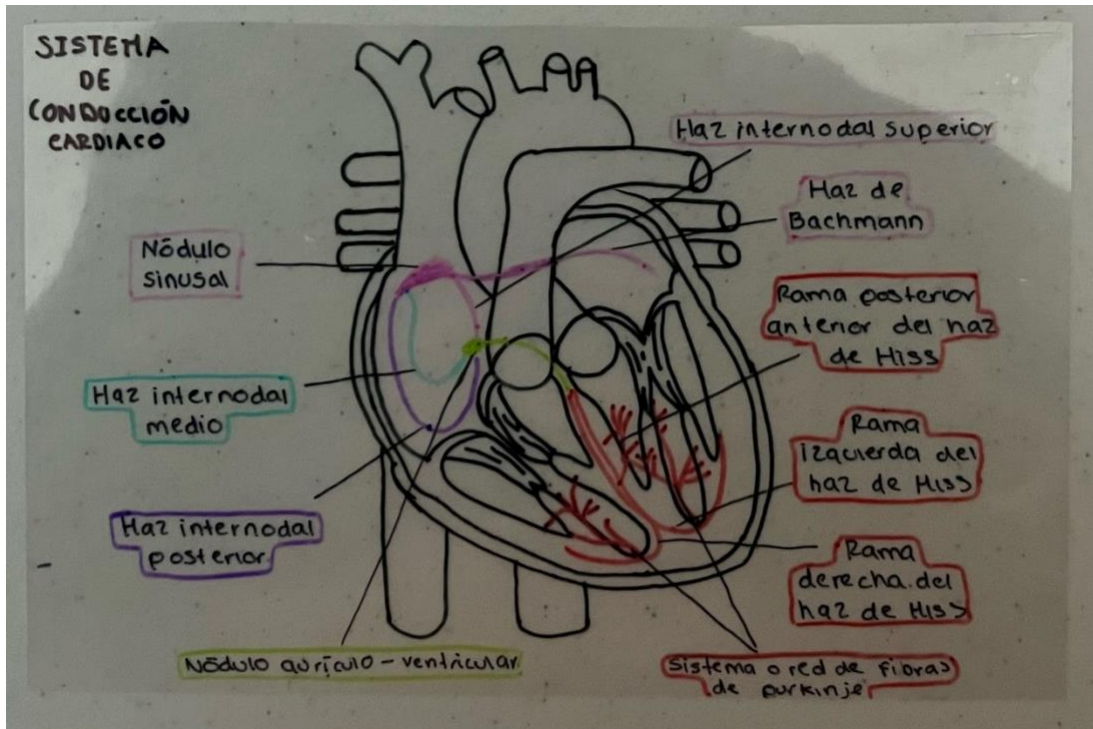 SISTEMA
DE
CONDUCCIÓN
CARDIACO
Haz internodal superior
Haz de
Bachmann
Nódulo
sinusal
Rama posterior
anterior del haz
de Hiss
Haz internodal
medio
Rama
izquierda del
haz de Hiss
Haz internodal
posterior
Rama
derecha del
haz de Hiss
Nódulo aurículo-ventricular
Sistema o red de fibras
de purkinje